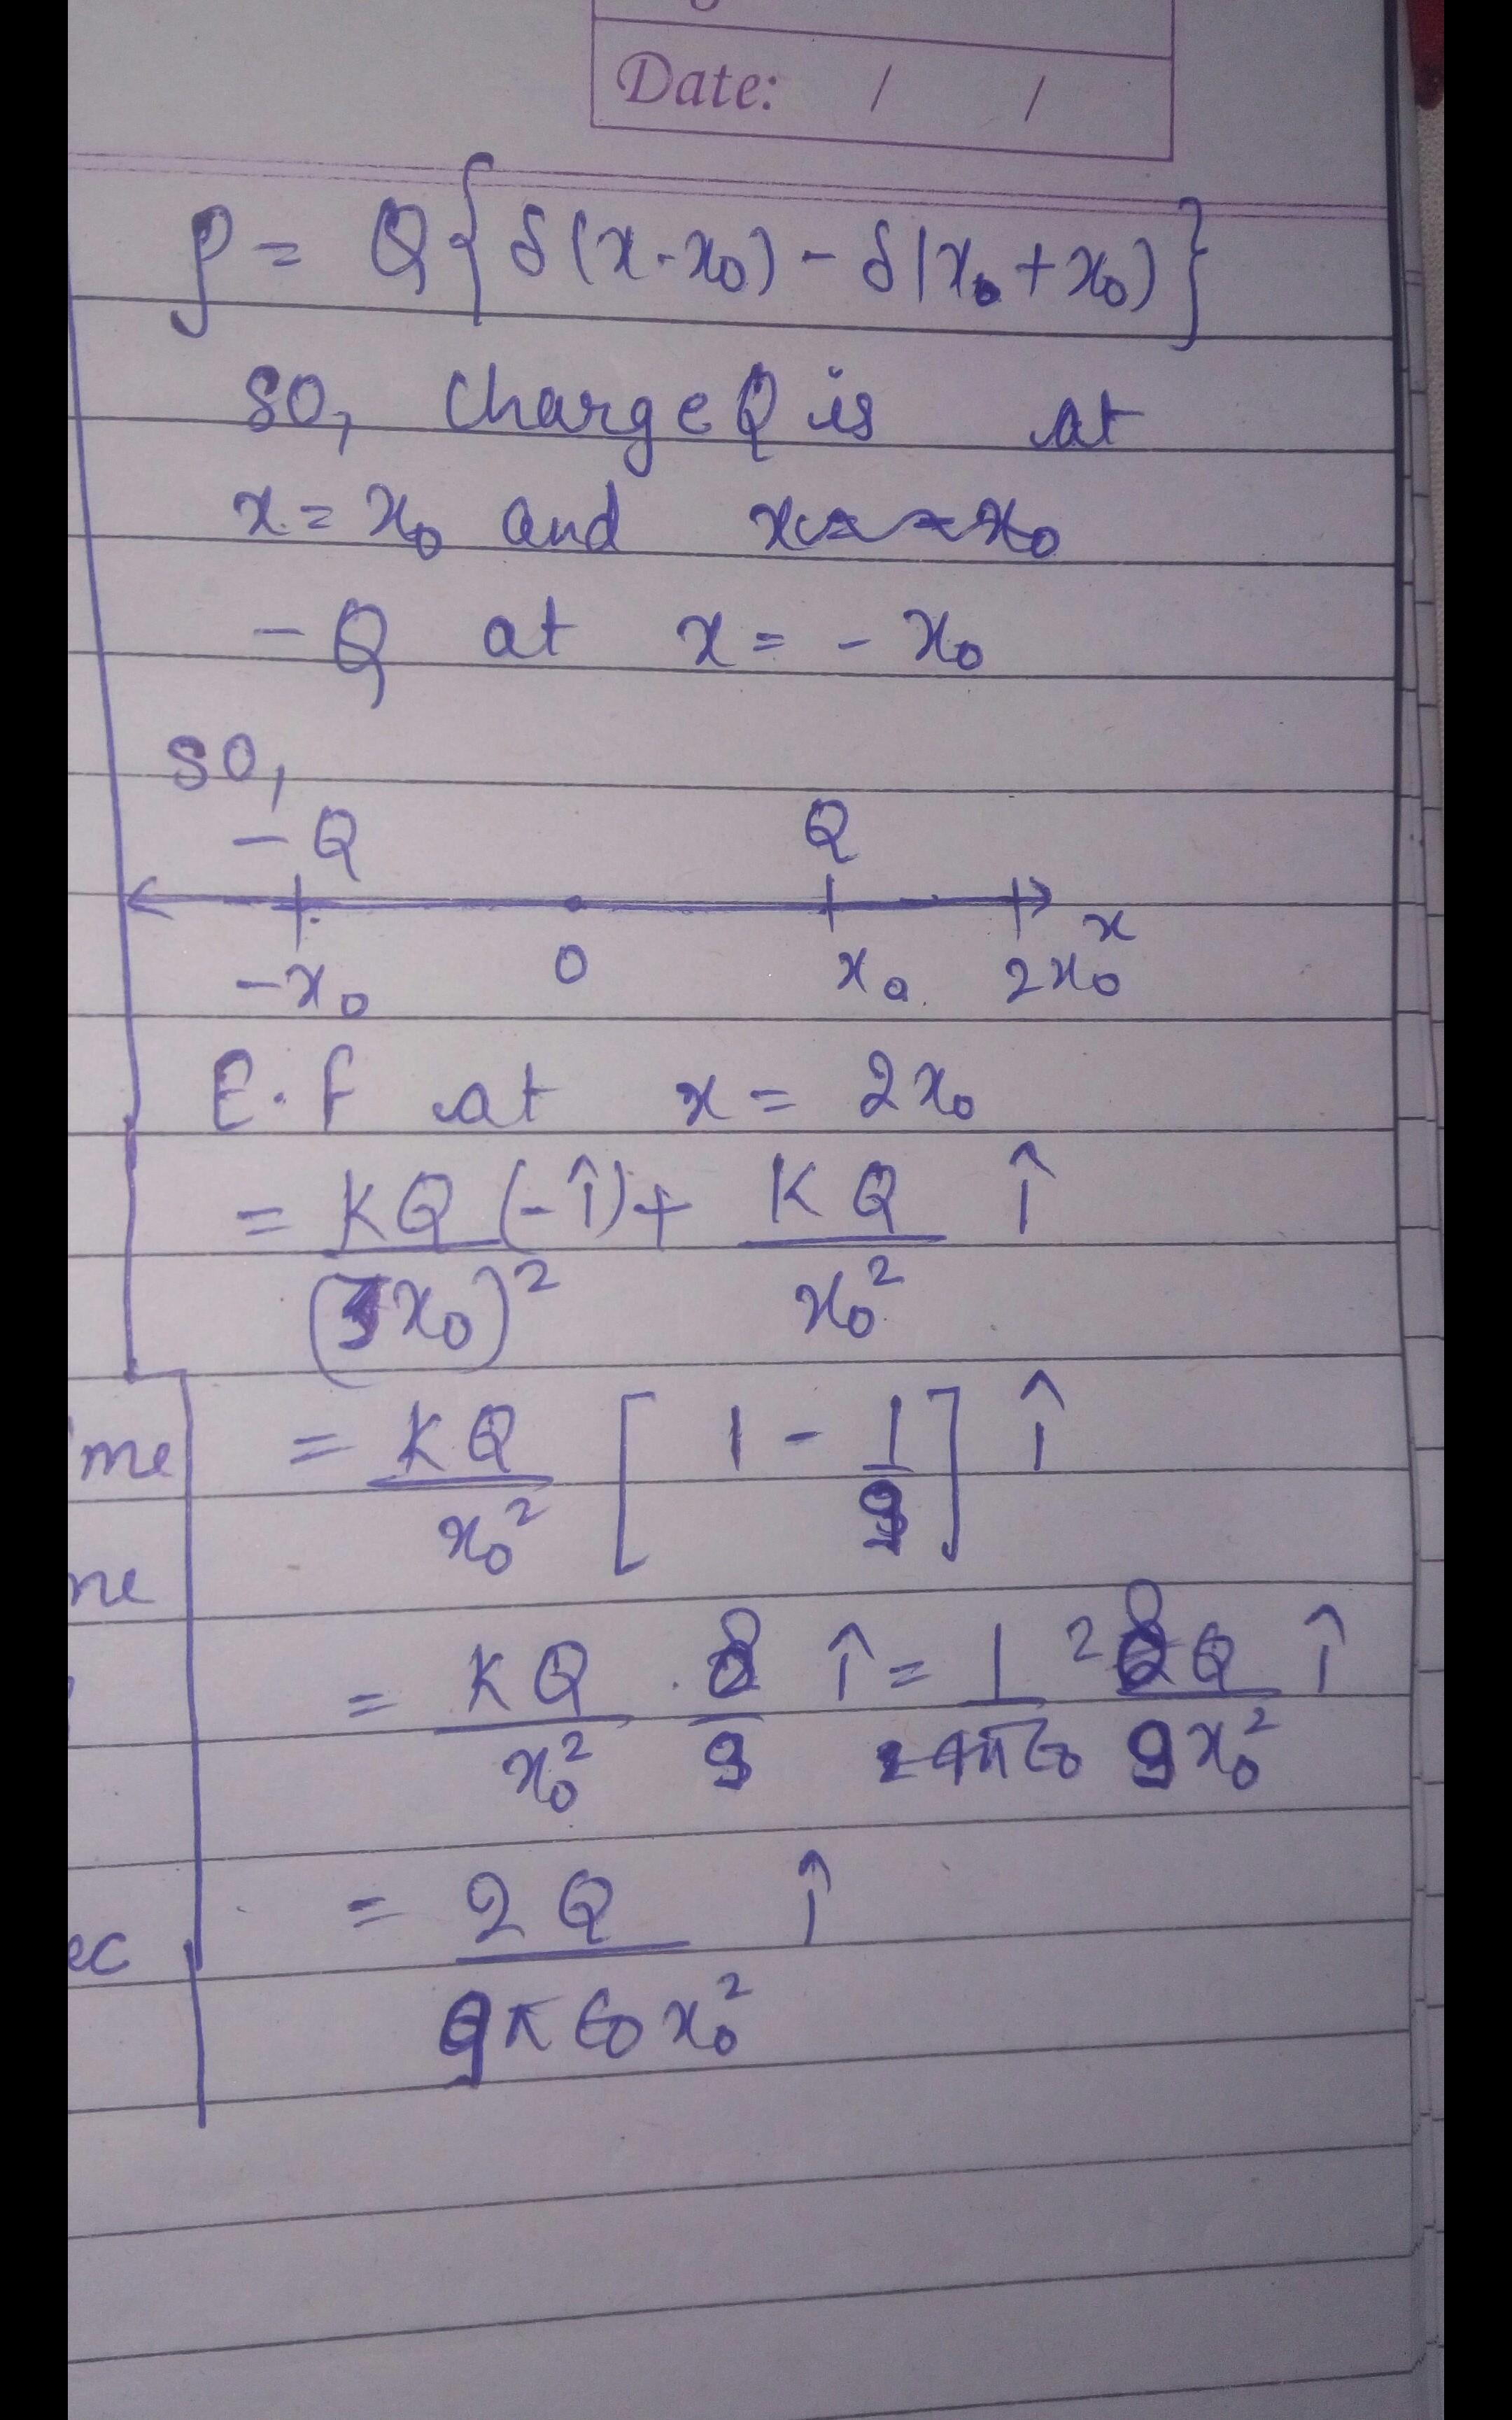 Date: / /
ρ = Q{δ(x-x₀) - δ(x₀+x₀)}
so, charge Q is at
x = x₀ and
-Q at x = - x₀
so,
-Q Q
-x₀ 0 x₀ 2x₀ x
E.F at x = 2x₀
= KQ/(3x₀)² (-î) + KQ/x₀² î
me = KQ/x₀² [1 - 1/9] î
ne
= KQ/x₀² . 8/9 î = 1/4πε₀ 2 8Q/9x₀² î
ec = 2Q/9πε₀x₀² î